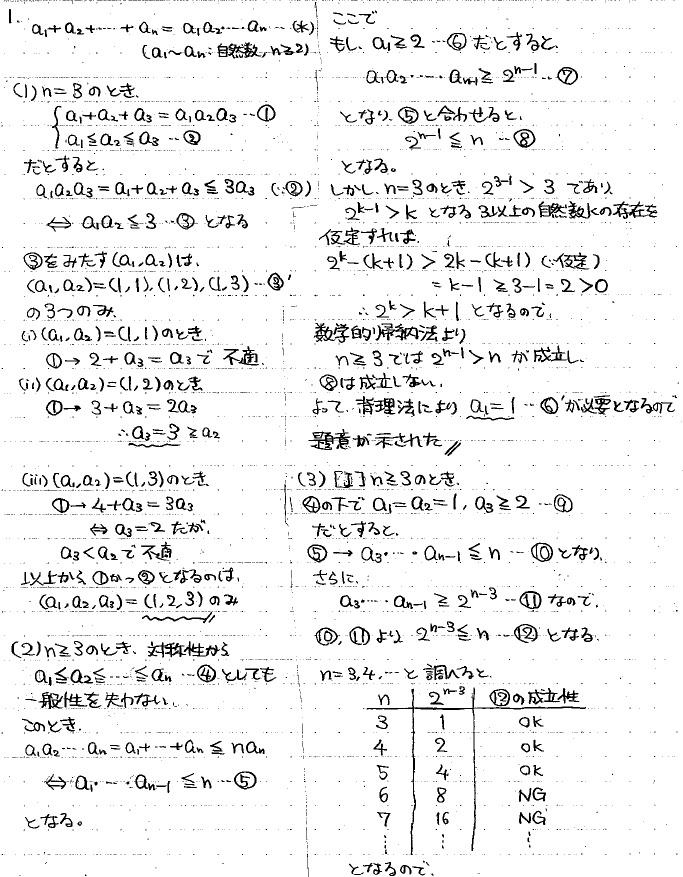 1.
a₁+a₂+⋯+aₙ = a₁a₂⋯aₙ ⋯(*)
(a₁~aₙ:自然数, n≧2)
(1) n=3のとき、
{a₁+a₂+a₃=a₁a₂a₃ ⋯①
a₁≦a₂≦a₃ ⋯②
だとすると、
a₁a₂a₃=a₁+a₂+a₃≦3a₃ (∵②)
⇔ a₁a₂≦3 ⋯③ となる
③をみたす(a₁,a₂)は、
(a₁,a₂)=(1,1),(1,2),(1,3)⋯③'
の3つのみ。
(i)(a₁,a₂)=(1,1)のとき
①→ 2+a₃=a₃で 不適
(ii)(a₁,a₂)=(1,2)のとき
①→ 3+a₃=2a₃
∴a₃=3≧a₂
(iii)(a₁,a₂)=(1,3)のとき
①→4+a₃=3a₃
⇔ a₃=2 だが、
a₃<a₂で 不適
以上から ①かつ②となるのは、
(a₁,a₂,a₃)=(1,2,3)のみ
(2) n≧3のとき、対称性から
a₁≦a₂≦⋯≦aₙ ⋯④としても
一般性を失わない。
このとき、
a₁a₂⋯aₙ=a₁+⋯+aₙ≦naₙ
⇔ a₁⋯aₙ₋₁≦n ⋯⑤
となる。
ここで
もし、a₁≧2 ⋯⑥ だとすると、
a₁a₂⋯aₙ₋₁≧2ⁿ⁻¹ ⋯⑦
となり、⑤と合わせると、
2ⁿ⁻¹≦n ⋯⑧
となる。
しかし、n=3のとき、2³⁻¹>3 であり、
2ᵏ⁻¹>k となる3以上の自然数kの存在を
仮定すれば、
2ᵏ-(k+1)>2k-(k+1) (∵仮定)
=k-1≧3-1=2>0
∴2ᵏ>k+1 となるので、
数学的帰納法より
n≧3では 2ⁿ⁻¹>n が成立し、
⑧は成立しない。
よって、背理法により a₁=1 ⋯⑥'が必要となるので
題意が示された
(3) [I] n≧3のとき、
④の下で a₁=a₂=1, a₃≧2 ⋯⑨
だとすると、
⑤→ a₃⋯aₙ₋₁≦n ⋯⑩となり、
さらに、
a₃⋯aₙ₋₁≧2ⁿ⁻³ ⋯⑪ なので、
⑩,⑪より 2ⁿ⁻³≦n ⋯⑫ となる
n=3,4,⋯と 調べると、
n 2ⁿ⁻³ ⑫の成立性
3 1 OK
4 2 OK
5 4 OK
6 8 NG
7 16 NG
⋮ ⋮ ⋮
となるので、